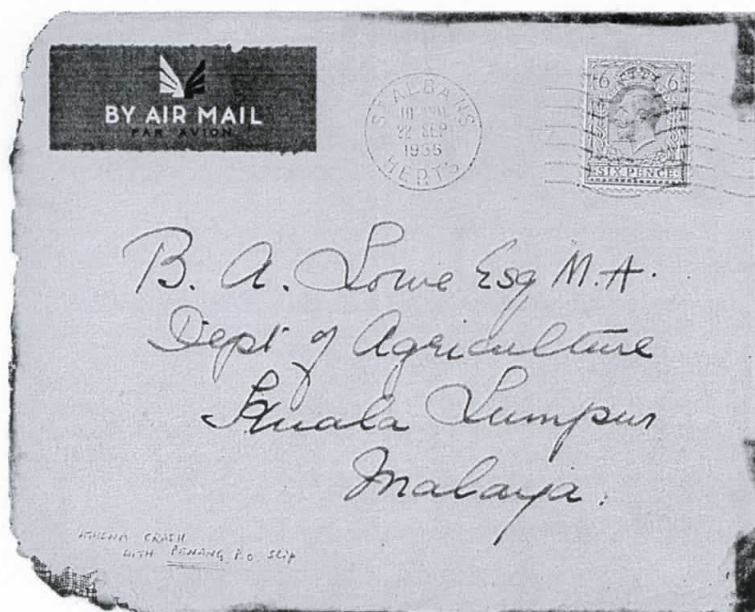 BY AIR MAIL
PAR AVION
ST ALBANS
22 SEP
1936
HERTS
6 6
SIX PENCE
B. A. Lowe Esq M.A.
Dept of Agriculture
Kuala Lumpur
Malaya.
ATHENA CRASH
WITH PENANG P.O. SLIP